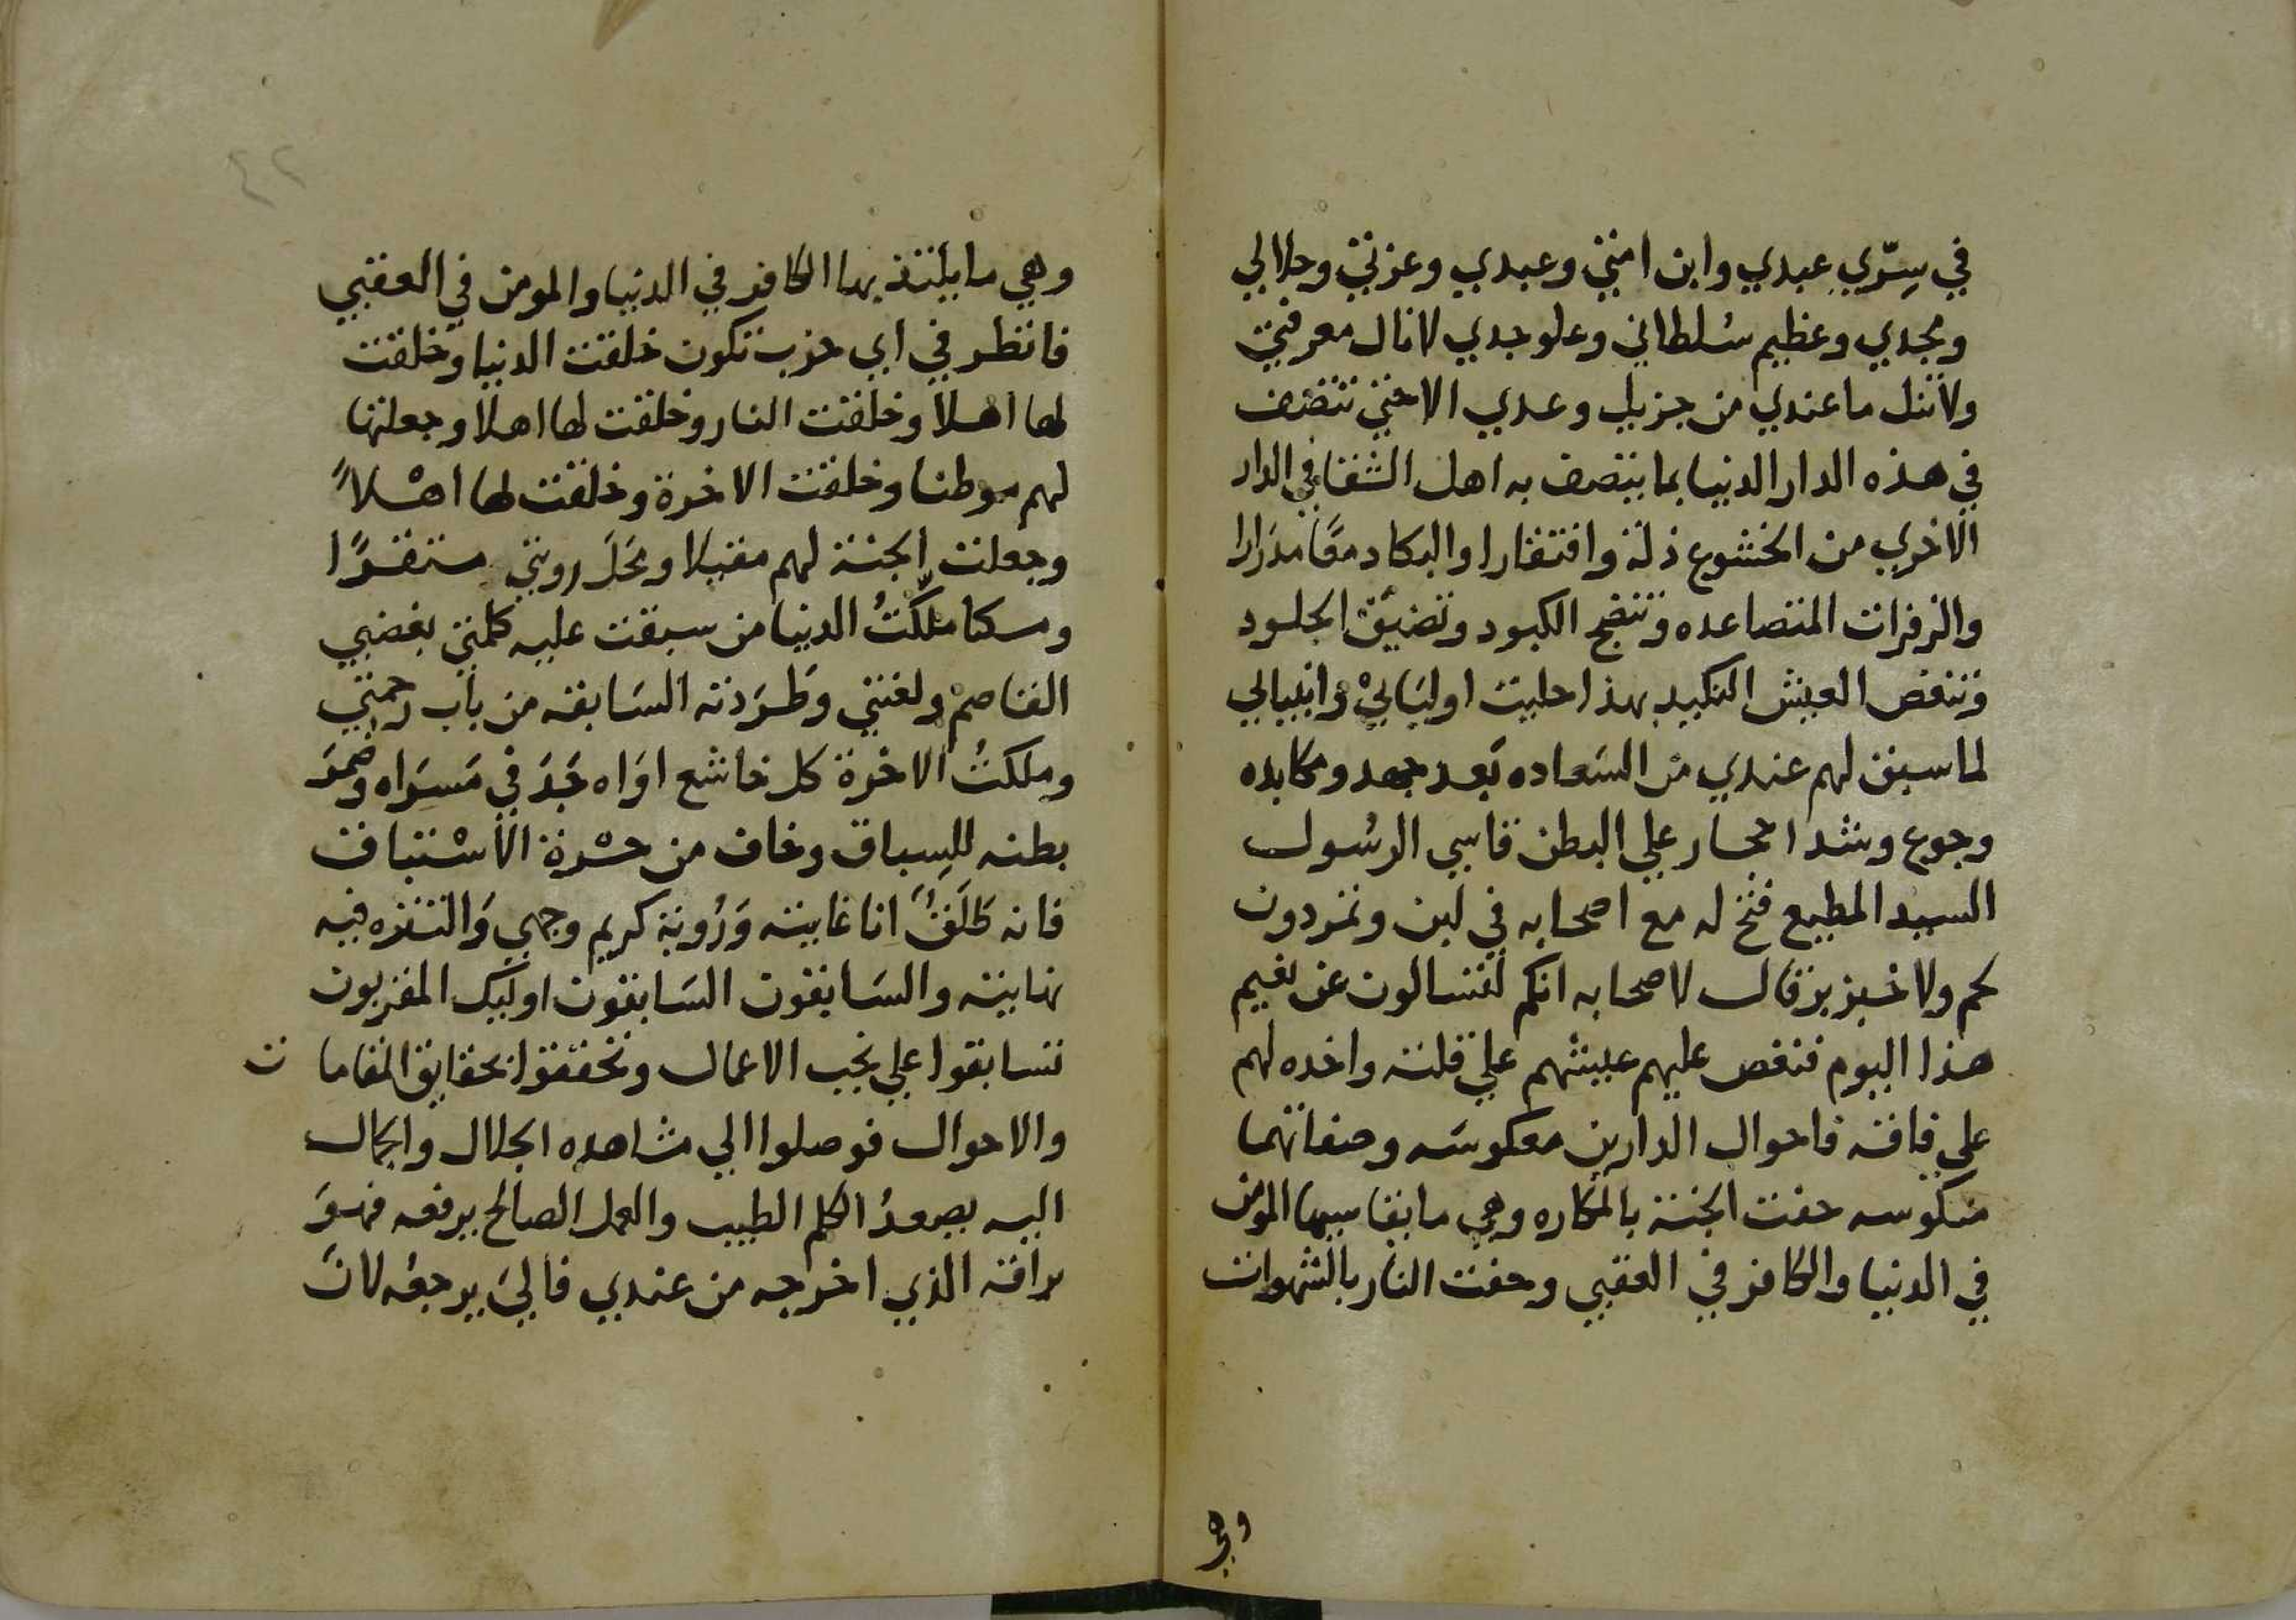 في سِرّي عبدي وابن امتي وعبدي وعزتي وجلالي
ومجدي وعظيم سُلطاني وعلو جدي لا نال معرفتي
ولا تنل ما عندي من جزيل وعدي الا حتي تتصف
في هذه الدار الدنيا بما يتصف به اهل الشقا في الدار
الاخري من الخشوع ذلة وافتقارا والبكا دمعًا مدرَارا
والزفرات المتصاعده وتنضج الكبود وتضيّق الجلود
وتنغص العيش النكيد بهذا حليت اوليَايْ وانبيايي
لما سبق لهم عندي من السَعاده بَعد جهد ومكابده
وجوع وشد احجار علي البطن قاسي الرسُول
السيد المطيع فتح له مع اصحابه في لبن وتمر دون
لحم ولا خبز بر قال لاصحابه انكم لتسالون عن نعيم
هذا اليوم فنغص عليهم عيشهم علي قلته واخده لهم
علي فاقة فاحوال الدارين معكوسَه وصفاتهما
منكوسه حفت الجنة بالمكاره وهي ما يقاسيها المومن
في الدنيا والكافر في العقبي وحفت النار بالشهوات
وهي
٤٢
وهي ما يلتذ بها الكافر في الدنيا والمومن في العقبي
فانظر في اي حزب تكون خلقت الدنيا وخلقت
لها اهلا وخلقت النار وخلقت لها اهلا وجعلتها
لهم موطنا وخلقت الاخرة وخلقت لها اهْلاً
وجعلت الجنة لهم مقيلا ومَحَلَ رويتي مستقرًا
ومسكنا ملّكتُ الدنيا من سبقت عليه كلمتي بغضبي
القاصم ولعنتي وطَرَدته السَابقه من باب رحمتي
وملكتُ الاخرة كل خاشع اوَاه جَدَ في مَسرَاه وضمرَ
بطنه للسِباق وخاف من حسْرة الاسْتباق
فانه طَلَقٌ انا غايته وَرُوية كريم وجهي وَالتنزه فيه
نهايته والسَابقون السَابقون اوليك المقربون
تسابقوا علي نجب الاعمال وتحققوا بحقايق المقامات
والاحوال فوصلوا الي مشاهده الجلال والجمال
اليه يصعدُ الكلم الطيب والعمل الصالح يرفعه فهوَ
براقه الذي اخرجه من عندي فاليَ يرجعُه لانَ